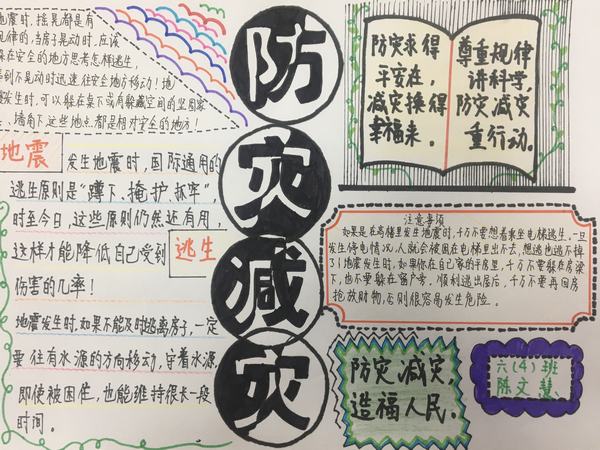 地震时,摇晃都是有
规律的,当房子晃动时,应该
躲在安全的地方思考怎样逃生,
等到不晃动时迅速往安全地方移动!地
震发生时,可以躲在桌下或有躲藏空间的坚固家
墙角下,这些地点都是相对安全的地方!
地震
发生地震时,国际通用的
逃生原则是“蹲下、掩护、抓牢”,
时至今日,这些原则仍然还有用,
这样才能降低自己受到
逃生
伤害的几率!
地震发生时,如果不能及时逃离房子,一定
要往有水源的方向移动,守着水源,
即使被困住,也能维持很长一段
时间。
防灾减灾
防灾求得
平安在,
减灾换得
幸福来。
尊重规律
讲科学,
防灾减灾
重行动。
注意事项
如果是在高楼里发生地震时,千万不要想着乘坐电梯逃生,一旦
发生停电情况,人就会被困在电梯里出不去,想逃也逃不掉
了!地震发生时,如果你在自己家的平房里,千万不要躲在房梁
下,也不要躲在窗户旁,顺利逃出屋后,千万不要再回房
抢救财物,否则很容易发生危险。
防灾、减灾,
造福人民。
六(4)班
陈文慧